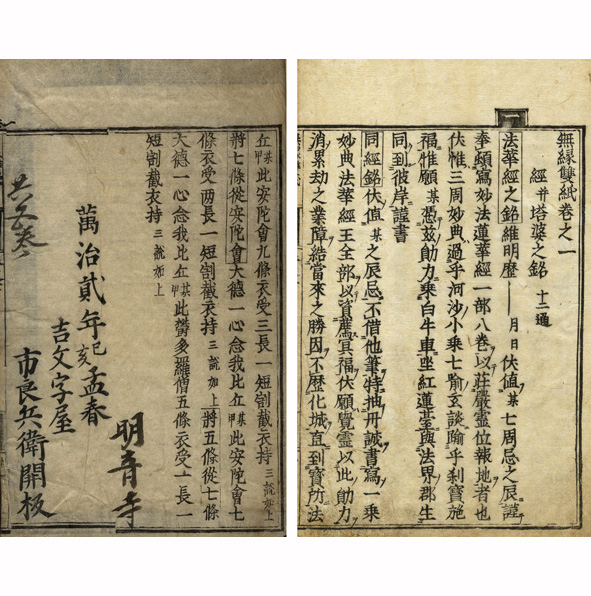 無縁雙紙卷之一
經并塔婆之銘 十二通
法華經之銘維明曆――月日伏值某七周忌之辰謹
奉頓寫妙法蓮華經一部八卷以莊嚴靈位報地者也
伏惟三周妙典過乎河沙小乘七喻玄談踰乎刹寶施
福惟願某憑茲助力乘白牛車坐紅蓮臺與法界群生
同到彼岸謹書
同經銘伏值某之辰忌不借他筆特抽丹誠書寫一乘
妙典法華經王全部以資薦冥福伏願覺靈以此助力
消累劫之業障結當來之勝因不歷化城直到寶所法
丘某甲此安陀會九條衣受三長一短割截衣持三說如上
將七條從安陀會大德一心念我比丘某甲此安陀會七
條衣受两長一短割截衣持三說如上將五條從七條
大德一心念我比丘某甲此欝多羅僧五條衣受一長一
短割截衣持三說如上
明音寺
萬治貳年己亥孟春
吉文字屋
市良兵衛開板